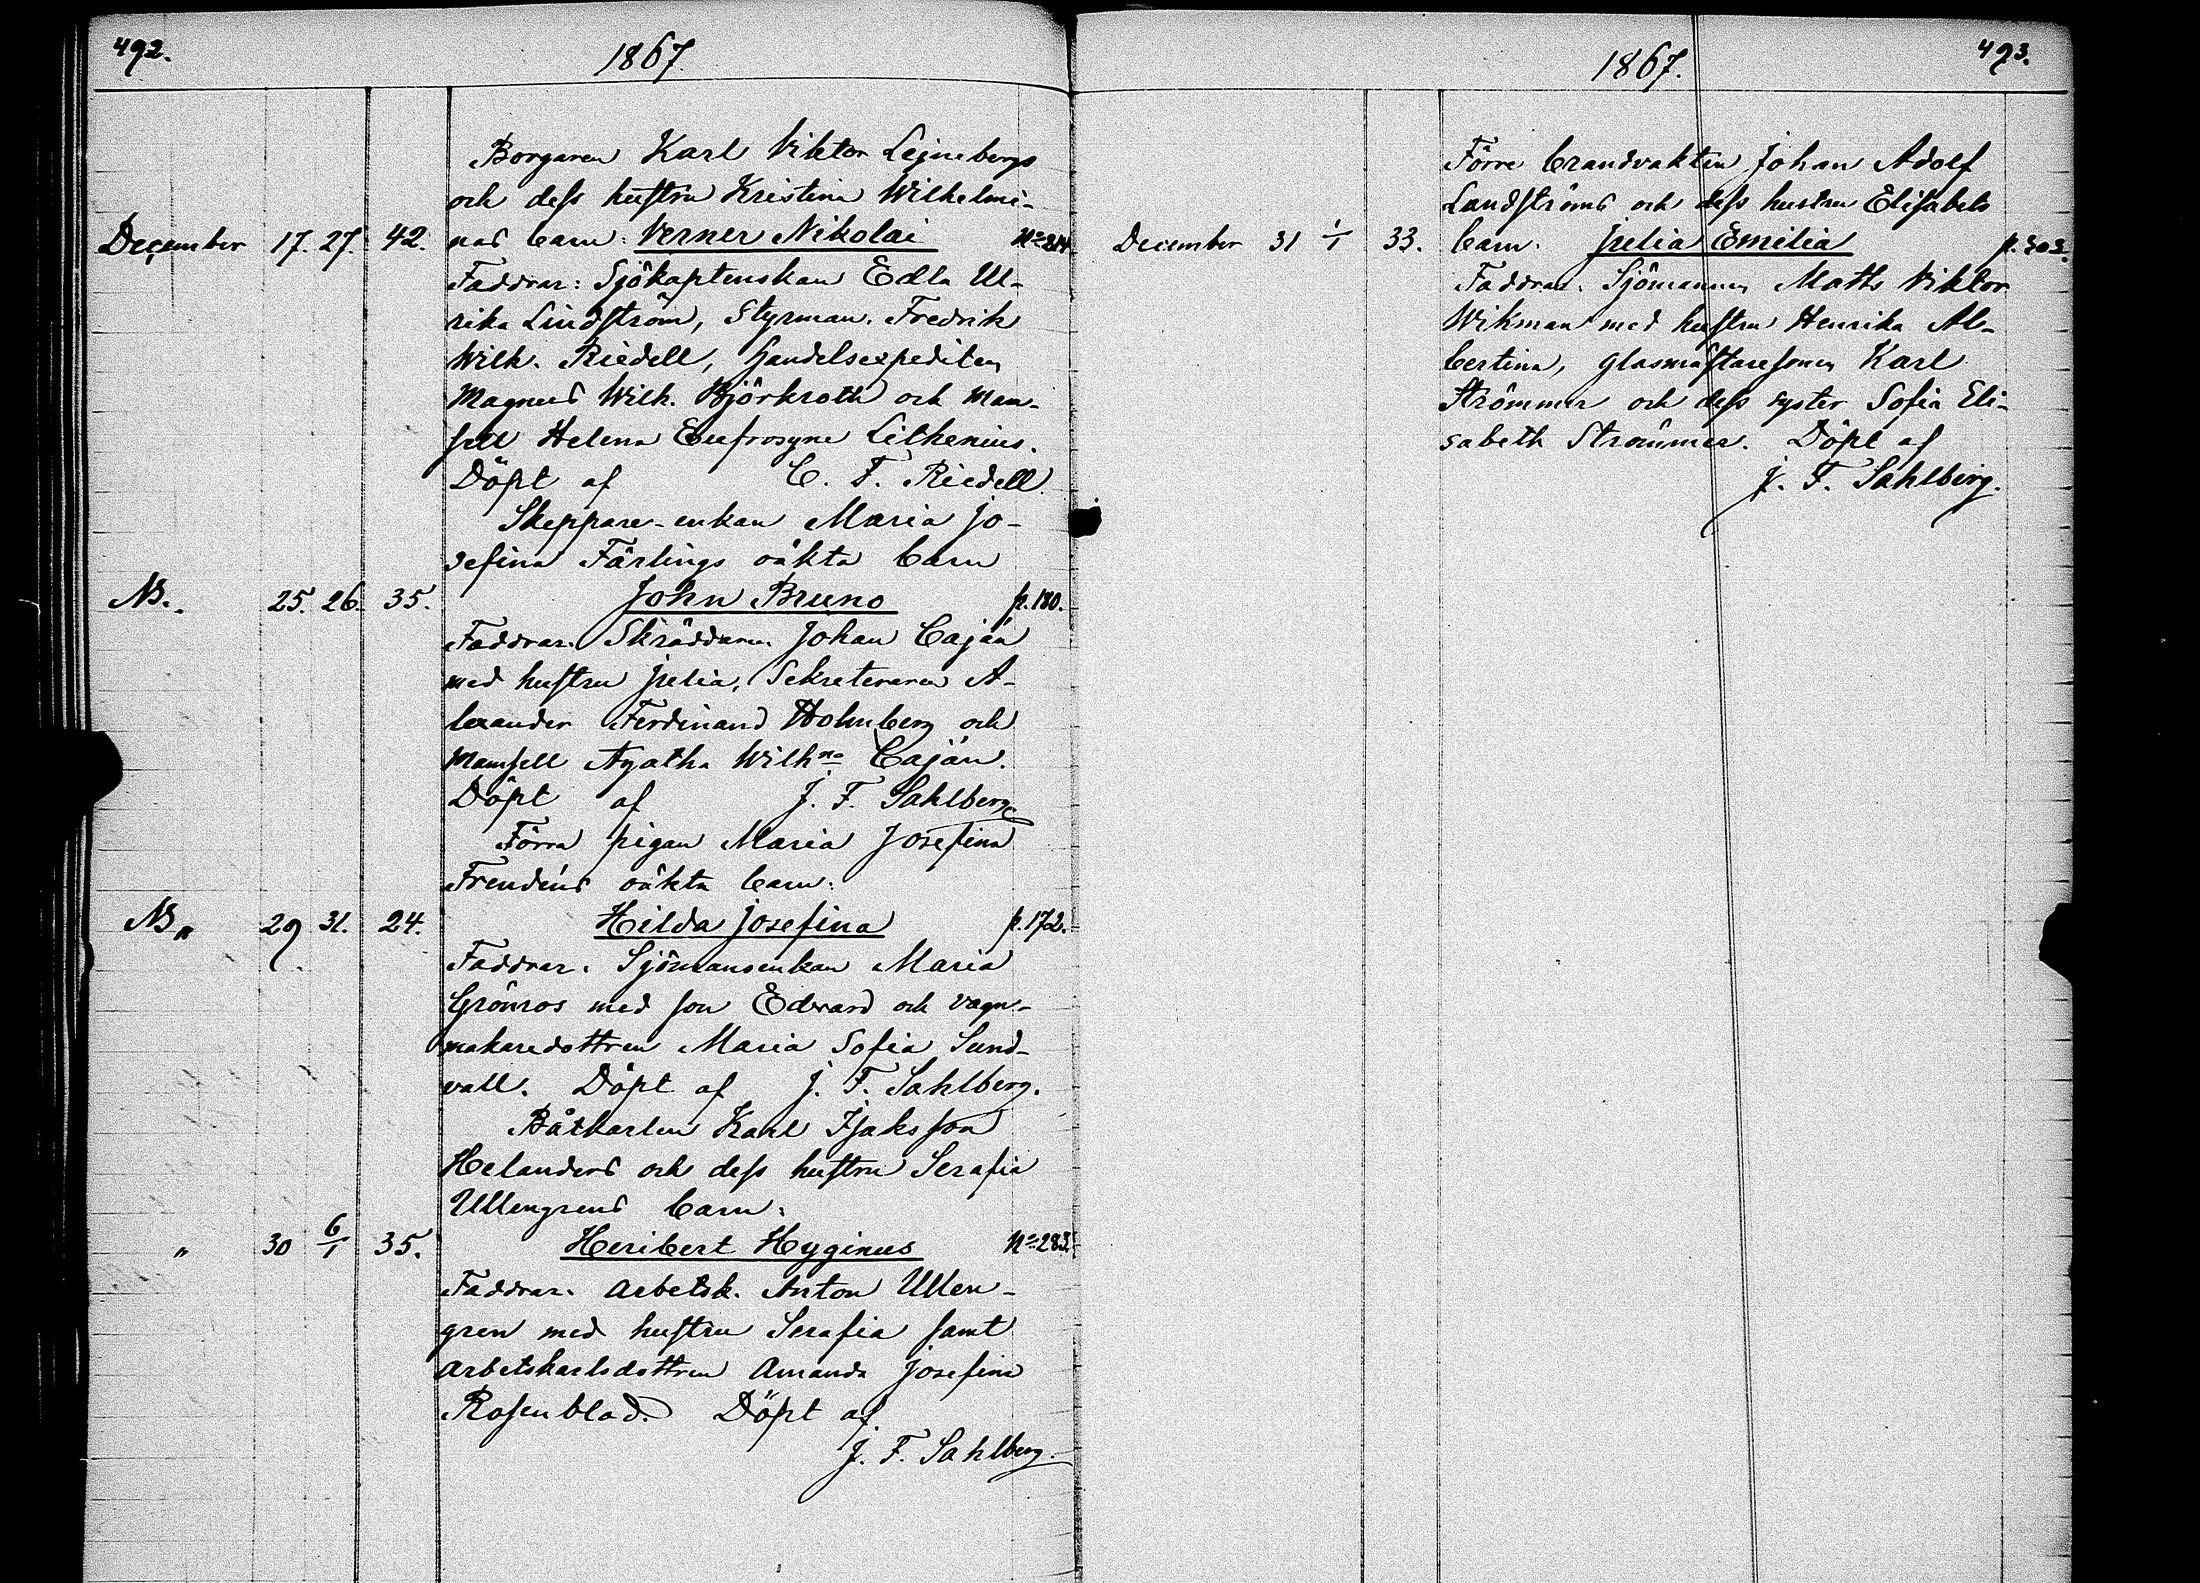 492.
1867.
Borgaren Karl Viktor Lejnebergs
och dess hustru Kristina Wilhelmi-
December 17. 27. 42. nas barn: Verner Nikolai No 214
Faddrar: Sjökaptenskan Edla Ul-
rika Lindström, Styrman. Fredrik
Wilh. Riedell, Handelsexpediten
Magnus Wilh. Björkroth och Mam-
sell Helena Eufrosyne Lithenius.
Döpt af C. F. Riedell.
Skeppare-enkan Maria Jo-
sefina Färlings oäkta barn
NB. 25. 26. 35. John Bruno p. 180.
Faddrar: Skräddaren Johan Caján
med hustru Julia, Sekreteraren A-
lexander Ferdinand Holmberg och
Mamsell Agatha Wilhna Caján.
Döpt af J. F. Sahlberg.
Förra pigan Maria Josefina
Frendéns oäkta barn:
NB „ 29 31. 24. Hilda Josefina p. 172.
Faddrar: Sjömansenkan Maria
Grönros med son Edvard och vagn-
makaredottren Maria Sofia Sund-
vall. Döpt af J. F. Sahlberg.
Båtkarlen Karl Isaksson
Helanders och dess hustru Serafia
Ullengrens barn:
„ 30 6/1 35. Heribert Hyginus No 283.
Faddrar: Arbetsk. Anton Ullen-
gren med hustru Serafia samt
Arbetskarlsdottren Amanda Josefina
Rosenblad. Döpt af
J. F. Sahlberg.
493.
1867.
Förre brandvakten Johan Adolf
Landströms och dess hustru Elisabets
December 31 1/1 33. barn: Julia Emilia p. 303.
Faddrar: Sjömannen Matts Viktor
Wikman med hustru Henrika Al-
bertina, Glasmästaresonen Karl
Strömmer och dess syster Sofia Eli-
sabeth Strömmer. Döpt af
J. F. Sahlberg.